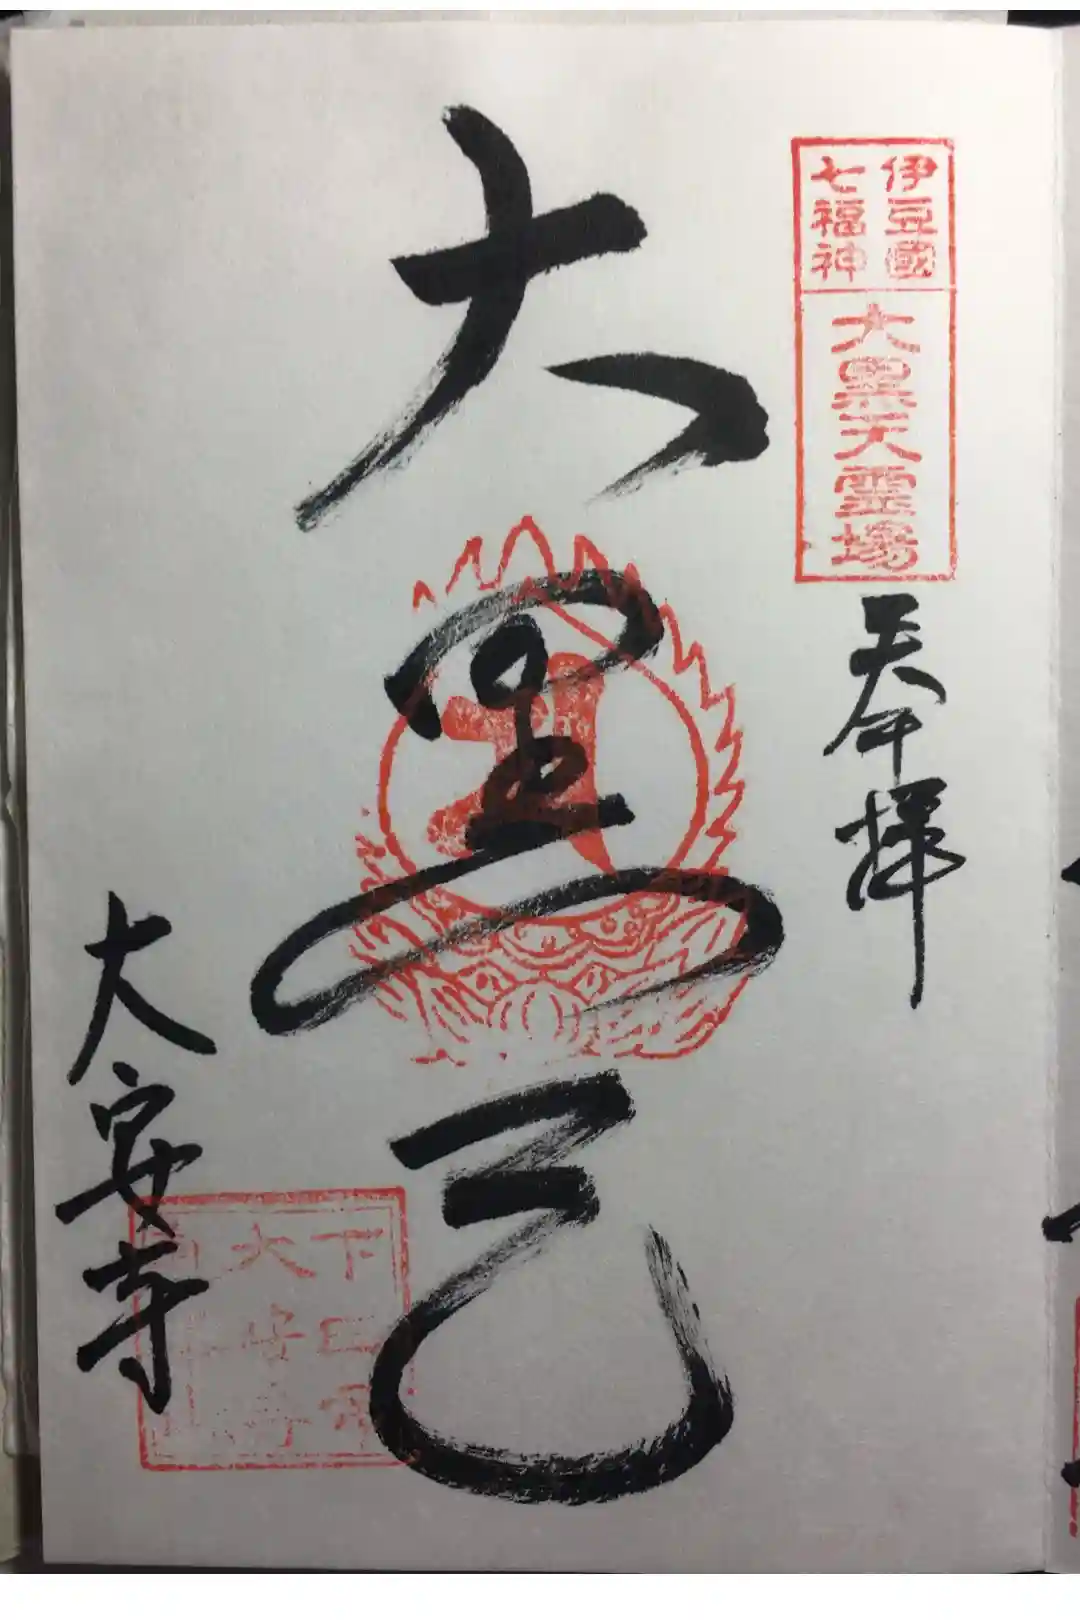 伊豆國
七福神
大黒天霊場
奉拝
大黒天
大安寺
下田市
大安寺